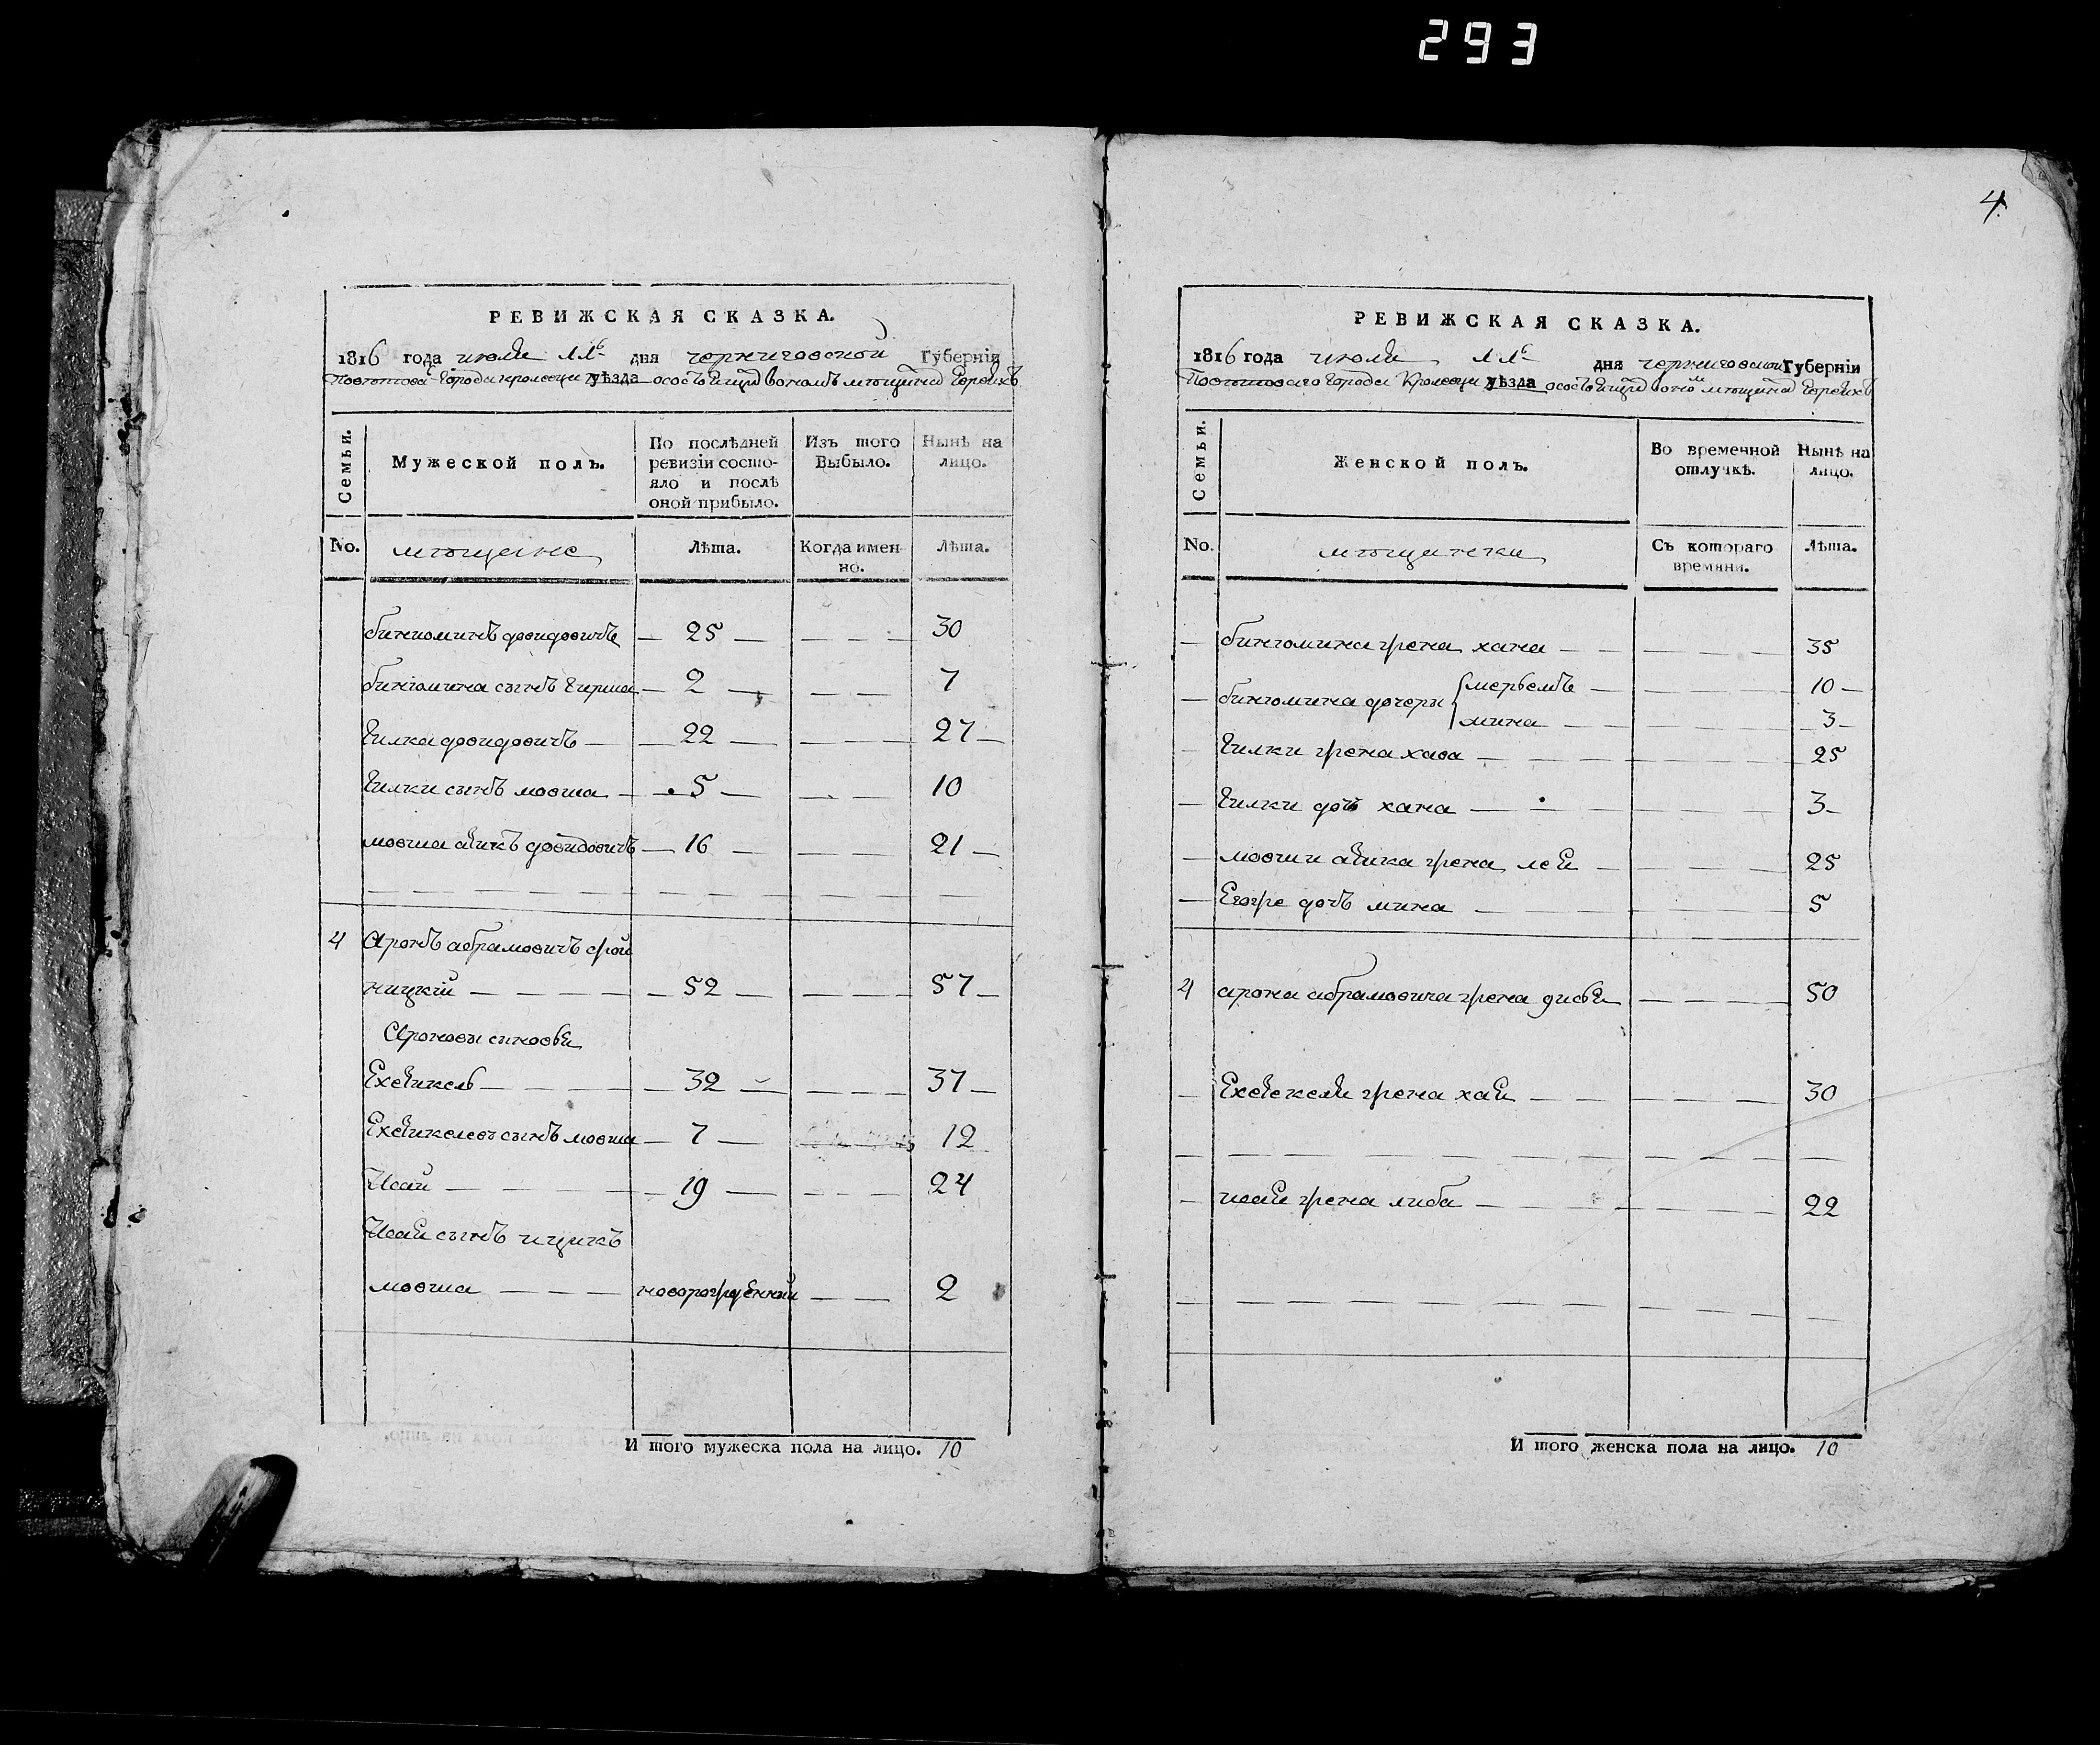 293
4.
РЕВИЖСКАЯ СКАЗКА.
1816 года июля дня черниговской Губерніи
Поветового города кролевца уѣзда о состоящих в оном мѣщанах евреяхъ
Семьи.
Мужеской полъ.
По послѣдней ревизіи состояло и послѣ оной прибыло.
Изъ того Выбыло.
Нынѣ на лицо.
No.
мѣщане
Лѣта.
Когда именно.
Лѣта.
биниоминъ довидовичъ — 25 — — — — 30
биниомина сынъ гирша — 2 — — — 7
гилка довидовичъ — — 22 — — — — 27 —
гилки сынъ мовша — — 5 — — — 10
мовша аикъ довидовичъ — 16 — — — 21 —
4 Аронъ абрамовичъ
ницкий — — — — 52 — — — — 57 —
Ароновы сыновья
Ехезикель — — — — 32 — — — — 37 —
Ехезикелев сынъ мовша — 7 — 12
Исай — — — — 19 — — — — 24
Исая сынъ ицикъ
мовша — — — новорожденный — — 2
И того мужеска пола на лицо. 10
РЕВИЖСКАЯ СКАЗКА.
1816 года июля дня черниговской Губерніи
Поветоваго города Кролевца уѣзда о состоящих в оном мѣщанах евреяхъ
Семьи.
Женской полъ.
Во временной отлучкѣ.
Нынѣ на лицо.
No.
мѣщанки
Съ котораго времяни.
Лѣта.
— биниомина жена хана — — — — — 35
— биниомина дочери мерьемъ — — — — 10 —
мина — — — — 3 —
— гилки жена хава — — — — — 25
— гилки дочь хана — — — — — 3 —
— мовши аика жена лея — — — — 25
— Егоже дочь мина — — — — — 5
4 арона абрамовича жена дисья — — — 50
— Ехезекеля жена хая — — — — — 30
— исая жена либа — — — — — 22
И того женска пола на лицо. 10